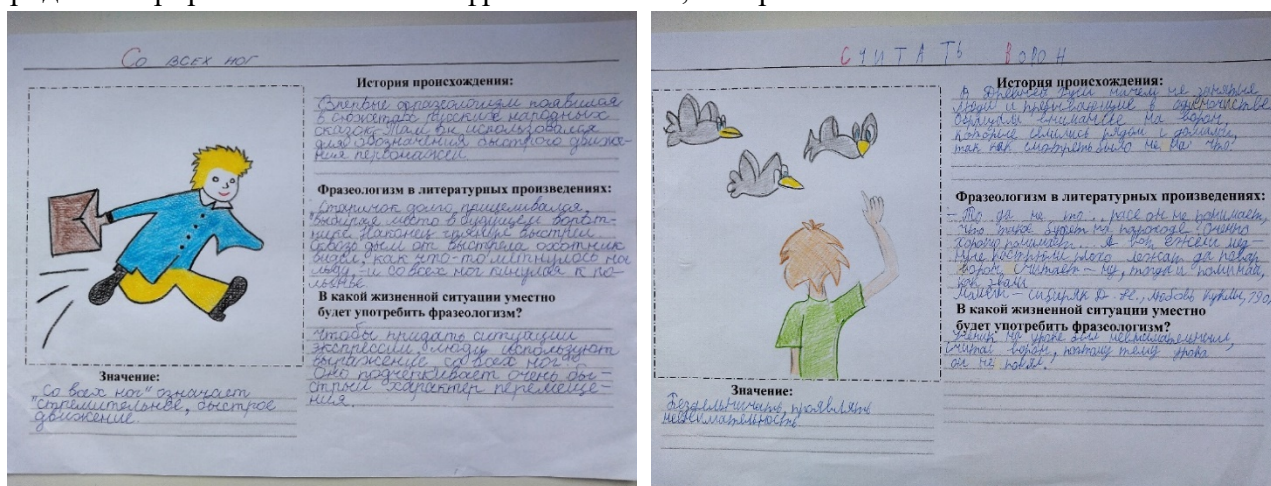 Со всех ног
История происхождения:
Впервые фразеологизм появился
в сюжетах русских народных
сказок. Там он использовался
для обозначения быстрого движе-
ния персонажей
Фразеологизм в литературных произведениях:
Старичок долго прицеливался,
выбирая место в будущем ворот-
нике. Наконец грянул выстрел
Сквозь дым от выстрела охотник
видел, как что-то метнулось на
льду, - и со всех ног кинулся к по-
лынье.
В какой жизненной ситуации уместно
будет употребить фразеологизм?
Чтобы придать ситуации
экспрессии, люди используют
выражение "со всех ног".
Оно подчёркивает очень бы-
стрый характер перемеще-
ния.
Значение:
"Со всех ног" означает
стремительное, быстрое
движение.
СЧИТАТЬ ВОРОН
История происхождения:
В Древней Руси ничем не занятые
люди и пребывающие в одиночестве
обращали внимание на ворон,
которые селились рядом с домами,
так как смотреть было не на что
Фразеологизм в литературных произведениях:
- То да не то... он не понимает,
что такое будет на пароходе очень
хорошо понимает... А вот ежели
плохо лежат да повар
ворон считает - ну, тогда и поминай,
как звали
Мамин - Сибиряк Д. Н., Любовь куклы,
В какой жизненной ситуации уместно
будет употребить фразеологизм?
Ученик на уроке был невнимательным,
считал ворон, поэтому тему урока
он не понял.
Значение:
Бездельничать, проявлять
невнимательность